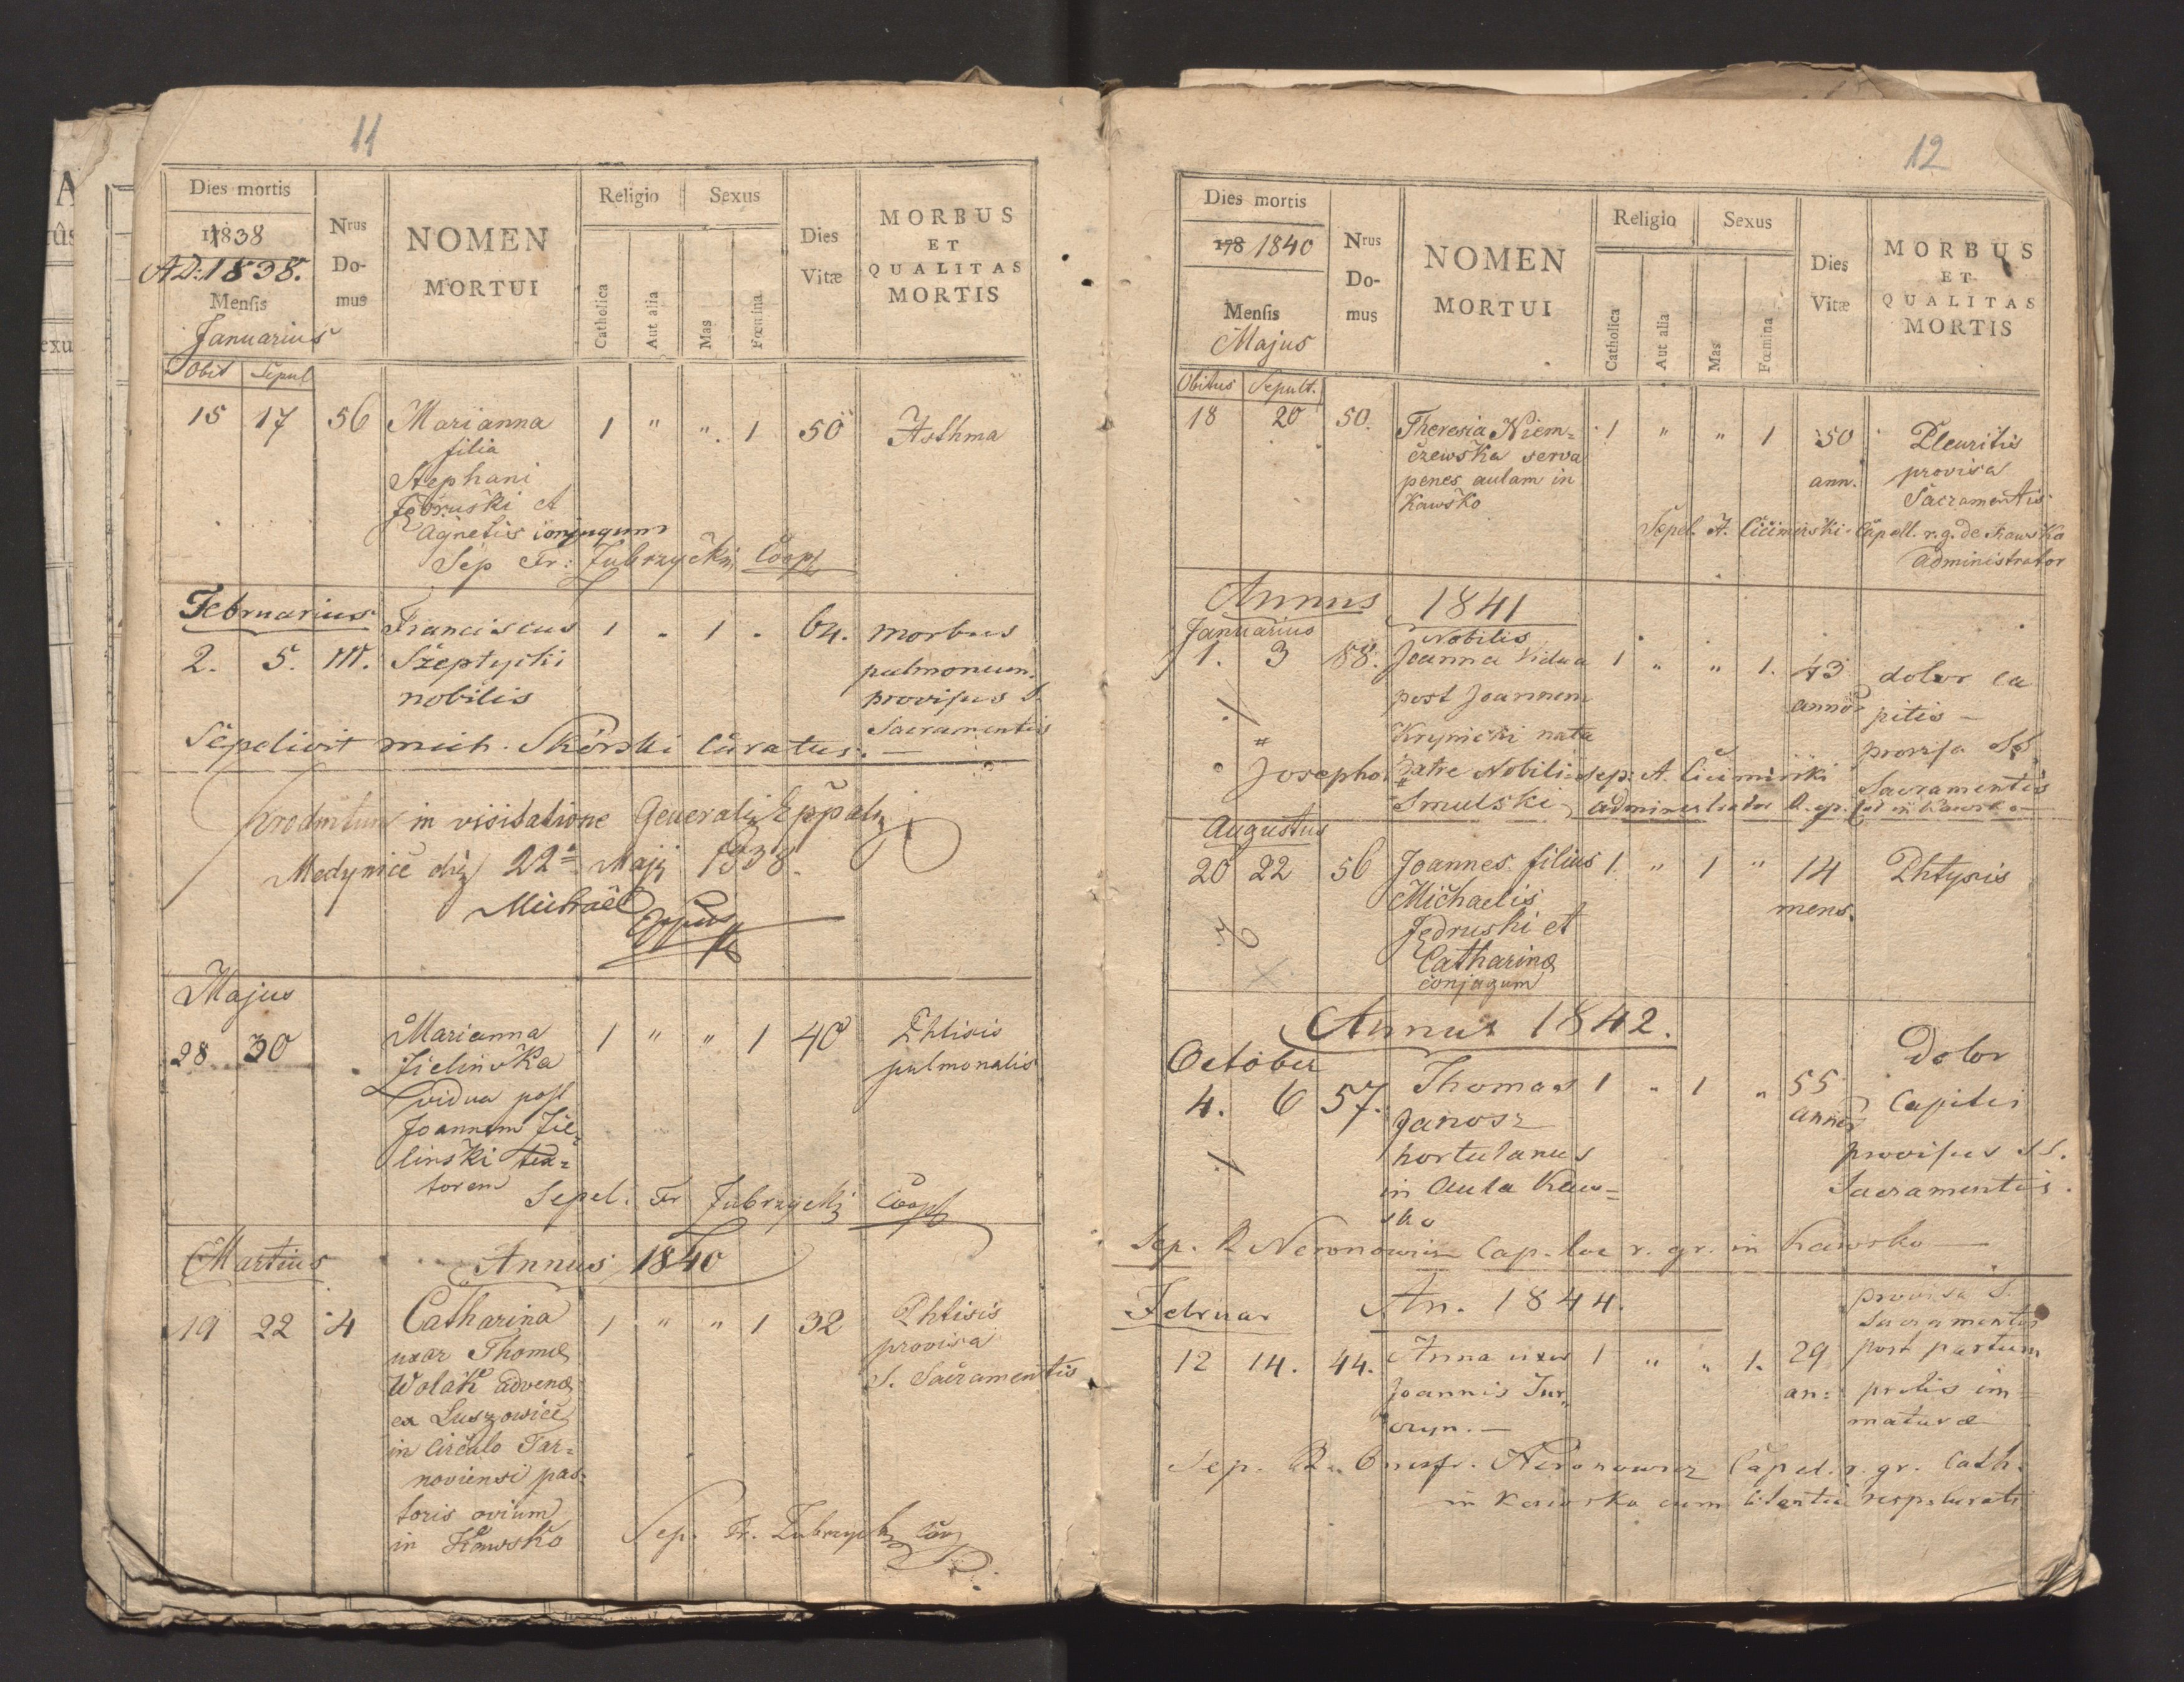 11
Dies mortis
1838
AD: 1838.
Mensis
Januarius
Nrus
Do-
mus
NOMEN
MORTUI
Religio
Catholica
Aut alia
Sexus
Mas
Fœmina
Dies
Vitæ
MORBUS
ET
QUALITAS
MORTIS
Obit Sepul
15 17 56 Marianna 1 " " 1 50 Asthma
filia
Stephani
Jędruski et
Agnetis conjugum
Sep Fr: Zubrzycki Coop
Februarius Franciscus 1 " 1 " 64. morbus
2. 5. 111. Szeptycki pulmonum.
nobilis provisus S.
Sacramentis
Sepelivit mich. Skórski Curatus.
Productum in visitatione Generali Eppali
Medynice die 22a Maji 1838.
Michael
Eppus
Majus
28 30 Marianna 1 " " 1 40 Phtisis
Zielinska pulmonalis
vidua post
Joannem Zie-
linski tex-
torem
Sepel. Fr Zubrzycki Coop
Martius Annus 1840
19 22 4 Catharina 1 " " 1 32 Phtisis
uxor Thomæ provisa
Wolak advenæ S. Sacramentis
ex Luszowice
in Circulo Tar-
noviensi pas-
toris ovium
in Kawsko
Sep. Fr. Zubrzycki Coop
12
Dies mortis
178 1840
Mensis
Majus
Nrus
Do-
mus
NOMEN
MORTUI
Religio
Catholica
Aut alia
Sexus
Mas
Fœmina
Dies
Vitæ
MORBUS
ET
QUALITAS
MORTIS
Obitus Sepult.
18 20 50. Theresia Niem- 1 " " 1 50 Pleuritis
czewska serva ann. provisa
penes aulam in Sacramentis
Kawsko
Sepel. A. Cicimirski Capell. r. g. de Kawsko
administrator
Annus 1841
Januarius Nobilis
1. 3 88. Joanna vidua 1 " " 1. 43 dolor ca
post Joannem anno pitis
Krynicki nata provisa SS
# Josepho patre Nobili sep: A. Cicimirski Sacramentis
Smulski administrator
Augustus
20 22 56 Joannes filius 1 " 1 " 14 Phtysis
Michaelis mens.
Jędruski et
Catharinæ
conjugum
Annus 1842.
October Dolor
4. 6 57. Thomas 1 " 1 " 55 Capitis
Janosz anno provisus SS.
hortulanus Sacramentis.
in Aula Kaw-
sko
Sep. R Neronowicz Cap. loc r. gr. in Kawsko
Februar An. 1844. provisa S.
Sacramentis
12 14. 44. Anna uxor 1 " " 1. 29 post partum
Joannis Jur an: prolis im-
czyn. maturæ
Sep. R. Onufr. Neronowicz Capel. r. gr. Cath.
in Kawsko cum licentia